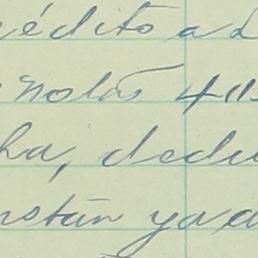 rédito a L
Notas 411
ha, dedu
nstan ya d